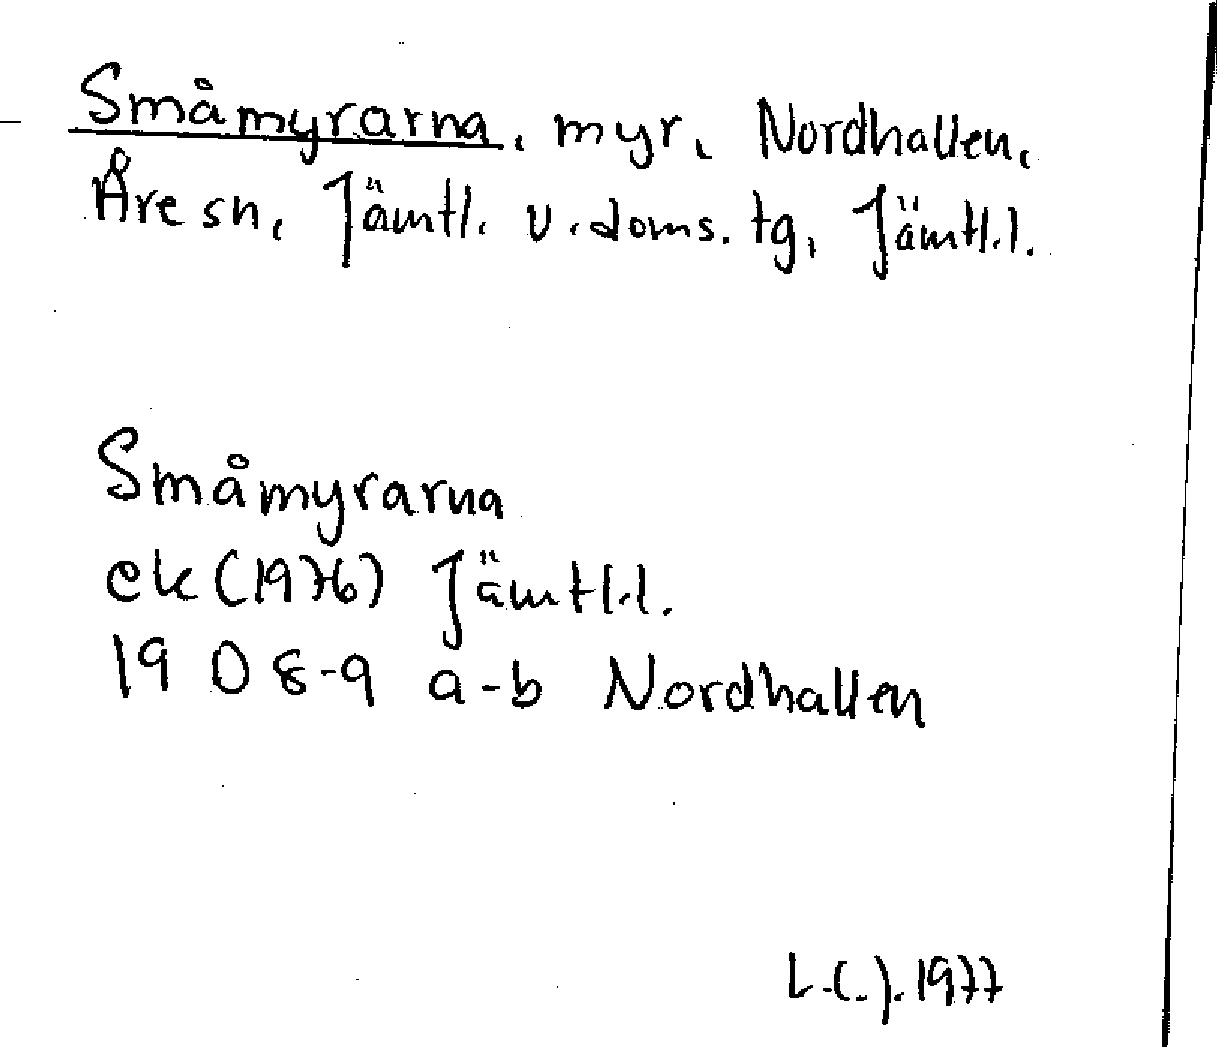 Småmyrarna, myr, Nordhallen,
Åre sn, Jämtl. v. doms. tg, Jämtl.l.
Småmyrarna
ek (1976) Jämtl.l.
19 D 8-9 a-b Nordhallen
L.C.J. 1977